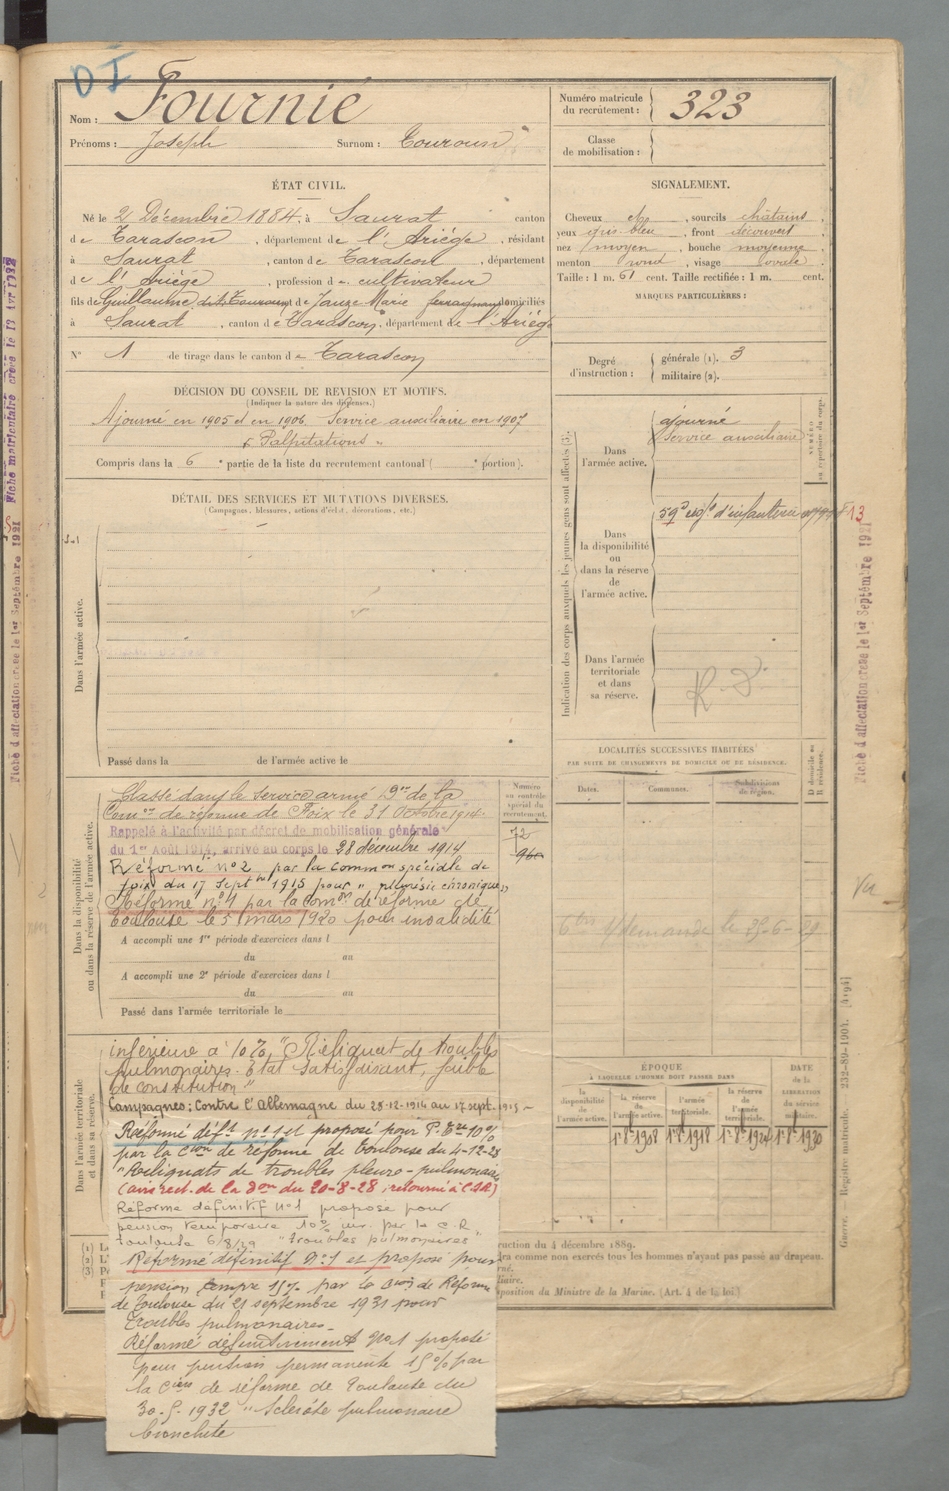 DI
Nom : Fournié
Prénoms : Joseph Surnom : Touroun
ÉTAT CIVIL.
Né le 2 Décembre 1884, à Saurat canton
de Tarascon , département de l'Ariège , résidant
à Saurat , canton de Tarascon , département
de l'Ariège , profession de cultivateur
fils de Guillaume dit Touroun et de Jauze Marie domiciliés
à Saurat , canton de Tarascon , département de l'Ariège
N° 1 de tirage dans le canton de Tarascon
DÉCISION DU CONSEIL DE REVISION ET MOTIFS.
(Indiquer la nature des dispenses.)
Ajourné en 1905 et en 1906. Service auxiliaire en 1907
"Palpitations"
Compris dans la 6e partie de la liste du recrutement cantonal ( e portion).
DÉTAIL DES SERVICES ET MUTATIONS DIVERSES.
(Campagnes, blessures, actions d'éclat, décorations, etc.)
Dans l'armée active.
Passé dans la de l'armée active le
Dans la disponibilité
ou dans la réserve de l'armée active.
Classé dans le service armé Don de la
Comon de réforme de Foix le 31 Octobre 1914.
Rappelé à l'activité par décret de mobilisation générale
du 1er Août 1914, arrivé au corps le 28 décembre 1914
Réformé n°2 par la Common spéciale de
Foix du 17 Septbre 1915 pour "pleurésie chronique"
Réformé n°1 par la Comon de réforme de
Toulouse le 5 mars 1920 pour invalidité
A accompli une 1re période d'exercices dans l
du au
A accompli une 2e période d'exercices dans l
du au
Passé dans l'armée territoriale le
Numéro
au contrôle
spécial du
recrutement.
72
960
Dans l'armée territoriale
et dans sa réserve.
inférieure à 10%, "Reliquat de troubles
pulmonaires. Etat satisfaisant, faible
de constitution"
Campagnes : Contre l'Allemagne du 28-12-1914 au 17 sept. 1915 -
Réformé déft n°1 et proposé pour P. Tre 10%
par la Cion de réforme de Toulouse du 4-12-28
"Reliquats de troubles pleuro-pulmonaires
(avis rect. de la don du 20-8-28, retourné à C.S.R.)
Réforme définitif n°1 propose pour
pension temporaire 10% inv. par la C.R.
Toulouse 6/8/29 "troubles pulmonaires"
Réformé définitif n°1 et proposé pour
pension tempre 15% par la Cion de Réforme
de Toulouse du 21 septembre 1931 pour
troubles pulmonaires.
Réformé définitivement n°1 proposé
pour pension permanente 15% par
la Cion de réforme de Toulouse du
30.5.1932 "Sclérose pulmonaire
bronchite
Numéro matricule
du recrutement : 323
Classe
de mobilisation :
SIGNALEMENT.
Cheveux , sourcils châtains ,
yeux gris-bleu , front découvert ,
nez moyen , bouche moyenne ,
menton rond , visage ovale .
Taille : 1 m. 61 cent. Taille rectifiée : 1 m. cent.
MARQUES PARTICULIÈRES :
Degré
d'instruction :
générale (1). 3
militaire (2).
Indication des corps auxquels les jeunes gens sont affectés (3).
NUMÉRO
au répertoire du corps.
Dans
l'armée active.
ajourné
Service auxiliaire
Dans
la disponibilité
ou
dans la réserve
de
l'armée active.
59e régt d'infanterie
Dans l'armée
territoriale
et dans
sa réserve.
LOCALITÉS SUCCESSIVES HABITÉES
PAR SUITE DE CHANGEMENTS DE DOMICILE OU DE RÉSIDENCE.
Dates. Communes. Subdivisions
de région.
D domicile ou
R résidence.
demande le 25-6-29
Vu
ÉPOQUE
À LAQUELLE L'HOMME DOIT PASSER DANS
la
disponibilité
de
l'armée active.
la réserve
de
l'armée active.
l'armée
territoriale.
la réserve
de
l'armée
territoriale.
DATE
de la
LIBÉRATION
du service
militaire.
1-8bre 1908 1-8bre 1918 1-8bre 1924 1-8bre 1930
(1)
(2)
(3)
ruction du 4 décembre 1889.
dra comme non exercés tous les hommes n'ayant pas passé au drapeau.
position du Ministre de la Marine. (Art. 4 de la loi.)
Guerre. — Registre matricule. 232-89-1904. [4194]
Fiche d'affectation créée le 1er Septembre 1921
Fiche d'affectation créée le 1er Septembre 1921
Fiche matrimentaire créée le 13 Avr